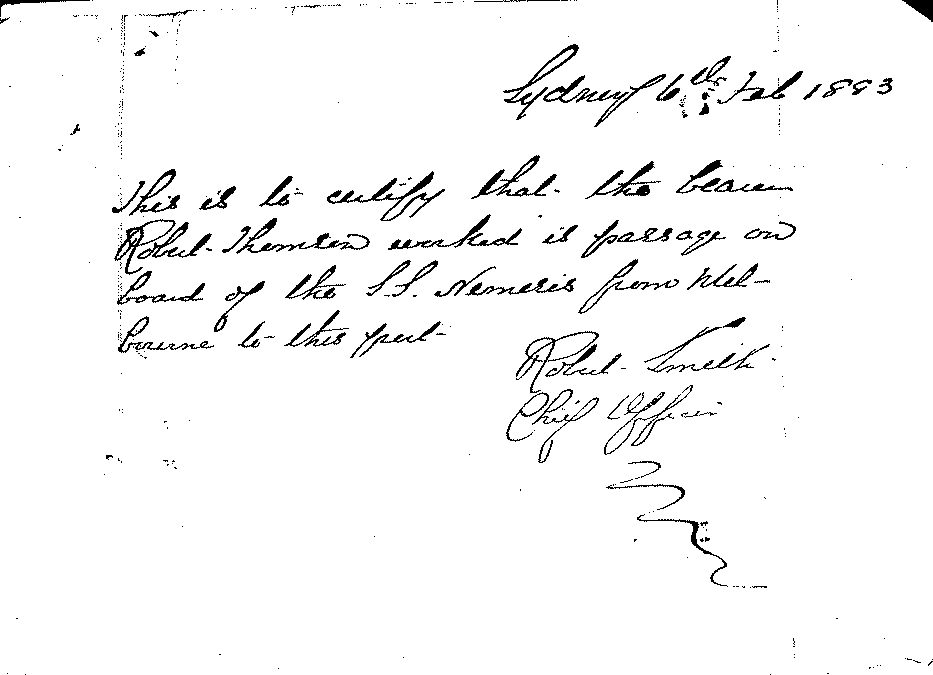 Sydney 6th Feb 1893
This is to certify that the bearer
Robert Thomson worked is passage on
board of the S.S. Nemesis from Mel-
bourne to this port
Robert Smith
Chief Officer